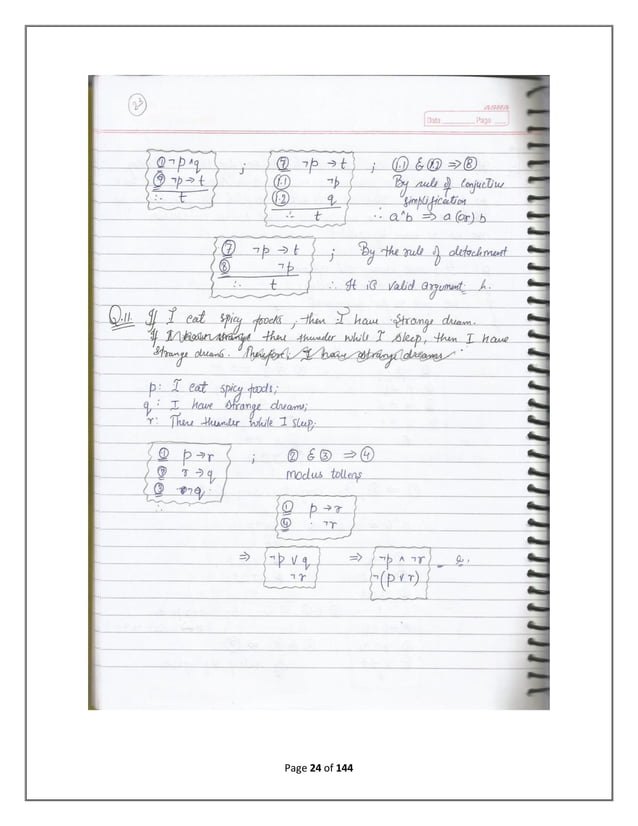 23
ASHA
Date Page
① ¬p∧q ; ⑦ ¬p → t ; (1.1) & (1.2) ⇒ ⑧
⑨ ¬p → t (1.1) ¬p By rule of Conjuctive
∴ t (1.2) q simplification
∴ t ∴ a∧b ⇒ a (or) b
⑦ ¬p → t ; By the rule of detachment
⑧ ¬p
∴ t ∴ It is valid argument
Q.11. If I eat spicy foods, then I have strange dream.
If there thunder while I sleep, then I have
strange dreams. Therefore, I have strange dreams
p: I eat spicy foods;
q: I have strange dreams;
r: There thunder while I sleep.
① p → r ; ② & ③ ⇒ ④
② r → q modus tollens
③ ¬q
∴ ① p → r
④ ¬r
⇒ ¬p ∨ q ⇒ ¬p ∧ ¬r
¬r ¬(p ∨ r)
Page 24 of 144